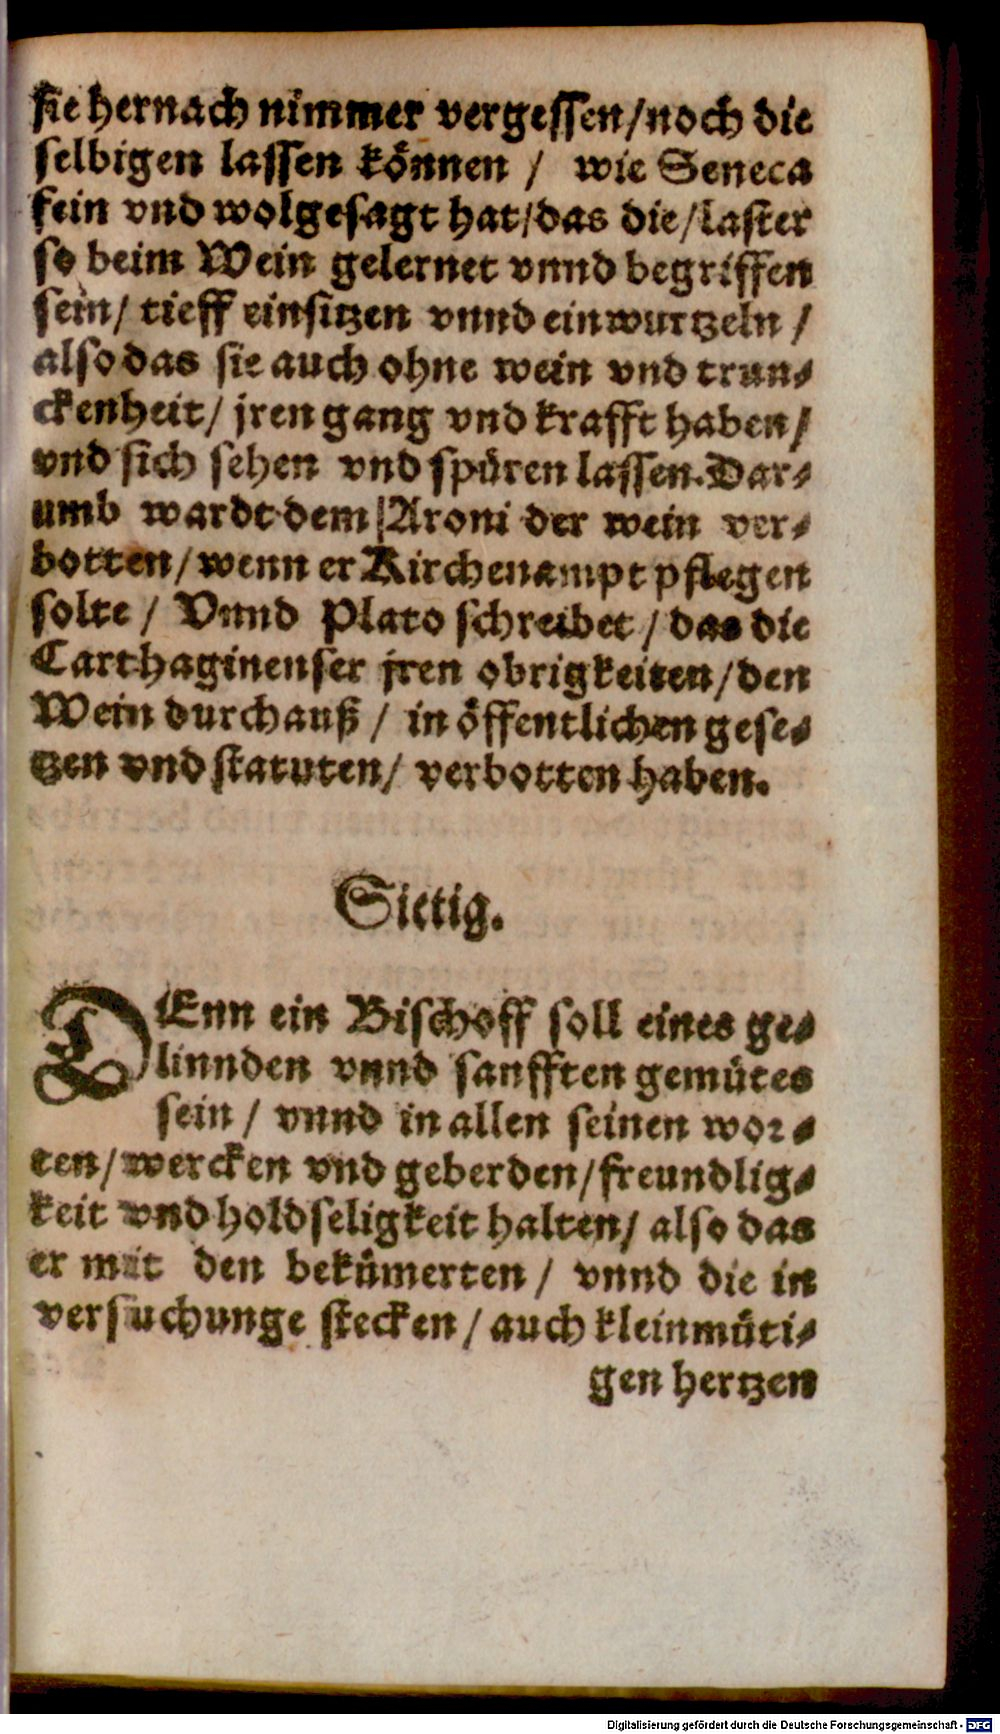 sie hernach nimmer vergessen/noch die
selbigen lassen können / wie Seneca
fein vnd wolgesagt hat/das die/laster
so beim Wein gelernet vnnd begriffen
sein/ tieff einsitzen vnnd einwurtzeln /
also das sie auch ohne wein vnd trun⸗
ckenheit/ jren gang vnd krafft haben/
vnd sich sehen vnd spüren lassen. Dar⸗
umb wardt dem Aroni der wein ver⸗
botten/wenn er Kirchenampt pflegen
solte / Vnnd Plato schreibet / das die
Carthaginenser jren obrigkeiten/den
Wein durchauß / in öffentlichen gese⸗
tzen vnd statuten/ verbotten haben.
Sittig.
DEnn ein Bischoff soll eines ge⸗
linnden vnnd sanfften gemütes
sein / vnnd in allen seinen wor⸗
ten/wercken vnd geberden/freundlig⸗
keit vnd holdseligkeit halten/ also das
er mit den bekümerten / vnnd die in
versuchunge stecken / auch kleinmüti⸗
gen hertzen
Digitalisierung gefördert durch die Deutsche Forschungsgemeinschaft - DFG